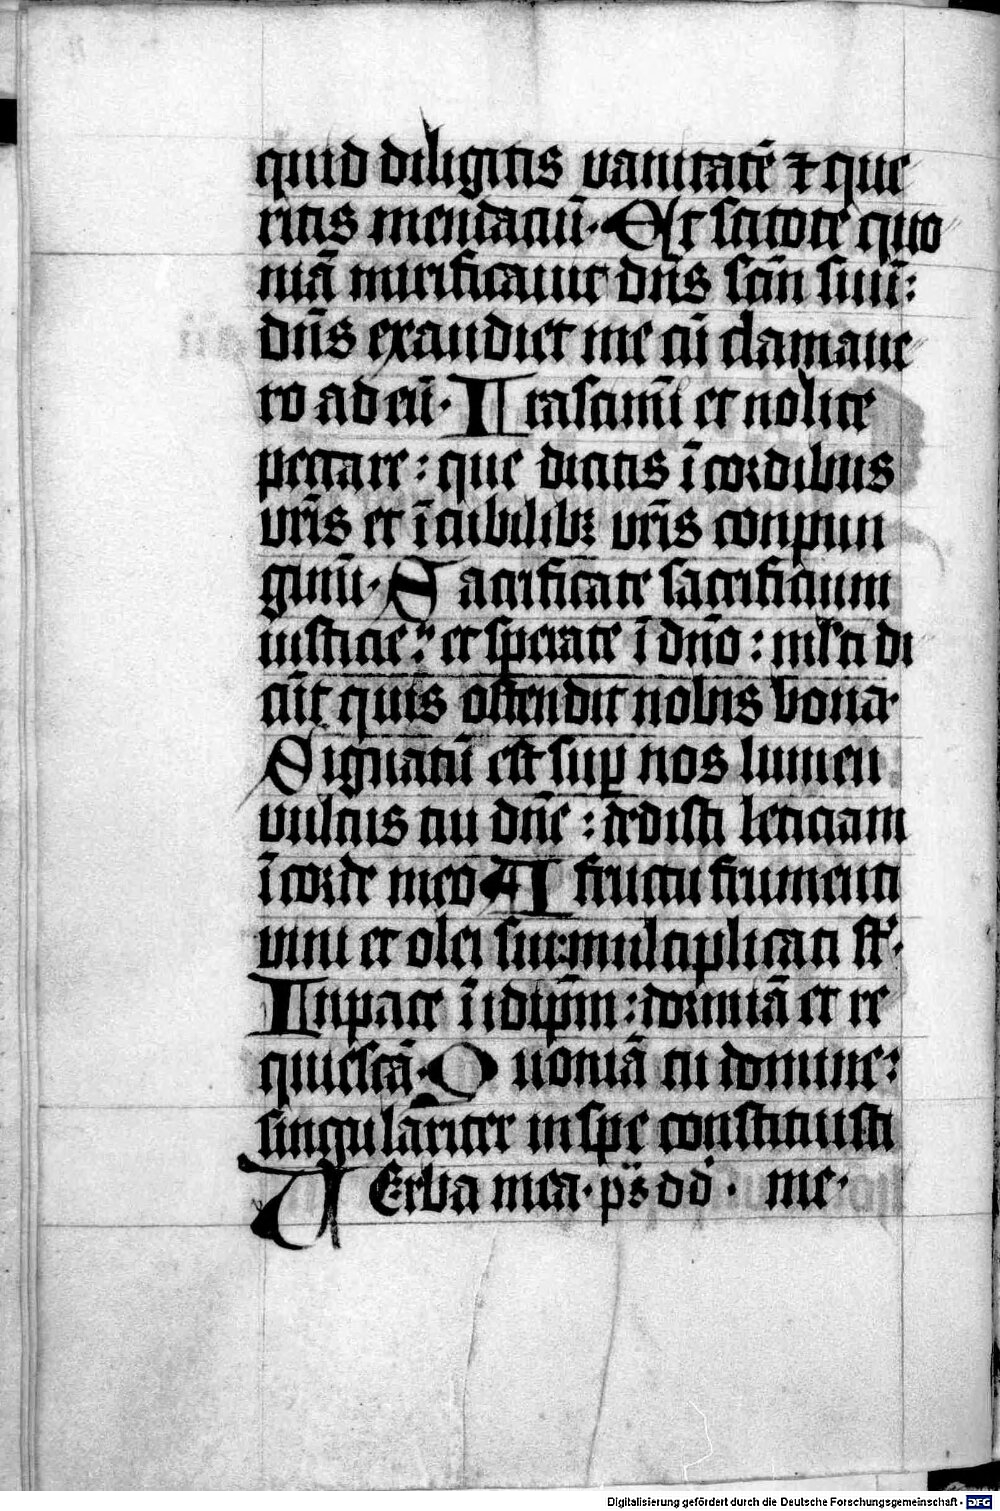 quid diligitis vanitatē ⁊ que
ritis mendaciū. Et scitote quo
niā mirificavit dn̄s sc̄m suū:
dn̄s exaudiet me cū clamave
ro ad eū. Irascimi̅ et nolite
peccare: que dicitis ī cordibus
vr̄is et ī cubilibꝫ vr̄is conpun
gimi̅. Sacrificate sacrificium
iusticie: et sperate ī dn̄o: mlʼti di
cūt quis ostendit nobis bona.
Signatū est suꝑ nos lumen
vultus tui dn̄e: dedisti leticiam
ī corde meo A fructu frumenti
vini et olei sui: multiplicati st̄.
In pace ī idip̄m: dormiā et re
quiescā. Quoniā tu domine:
singulariter in spe constituisti
VErba mea. ps dd. me.
Digitalisierung gefördert durch die Deutsche Forschungsgemeinschaft - DFG